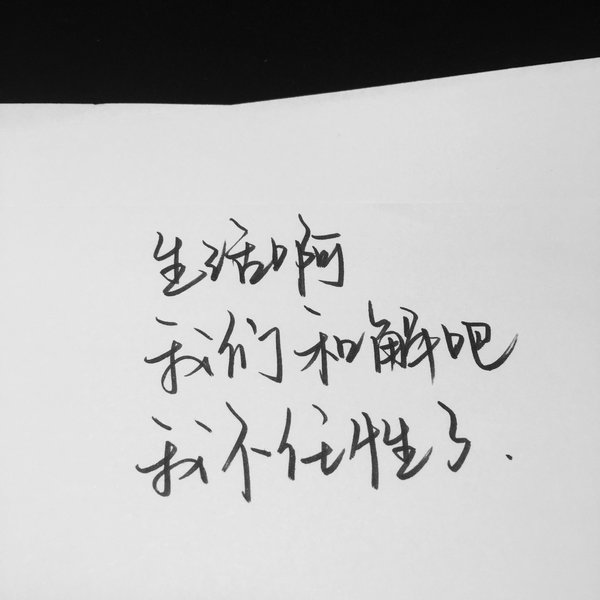 生活啊
我们和解吧
我不任性了.